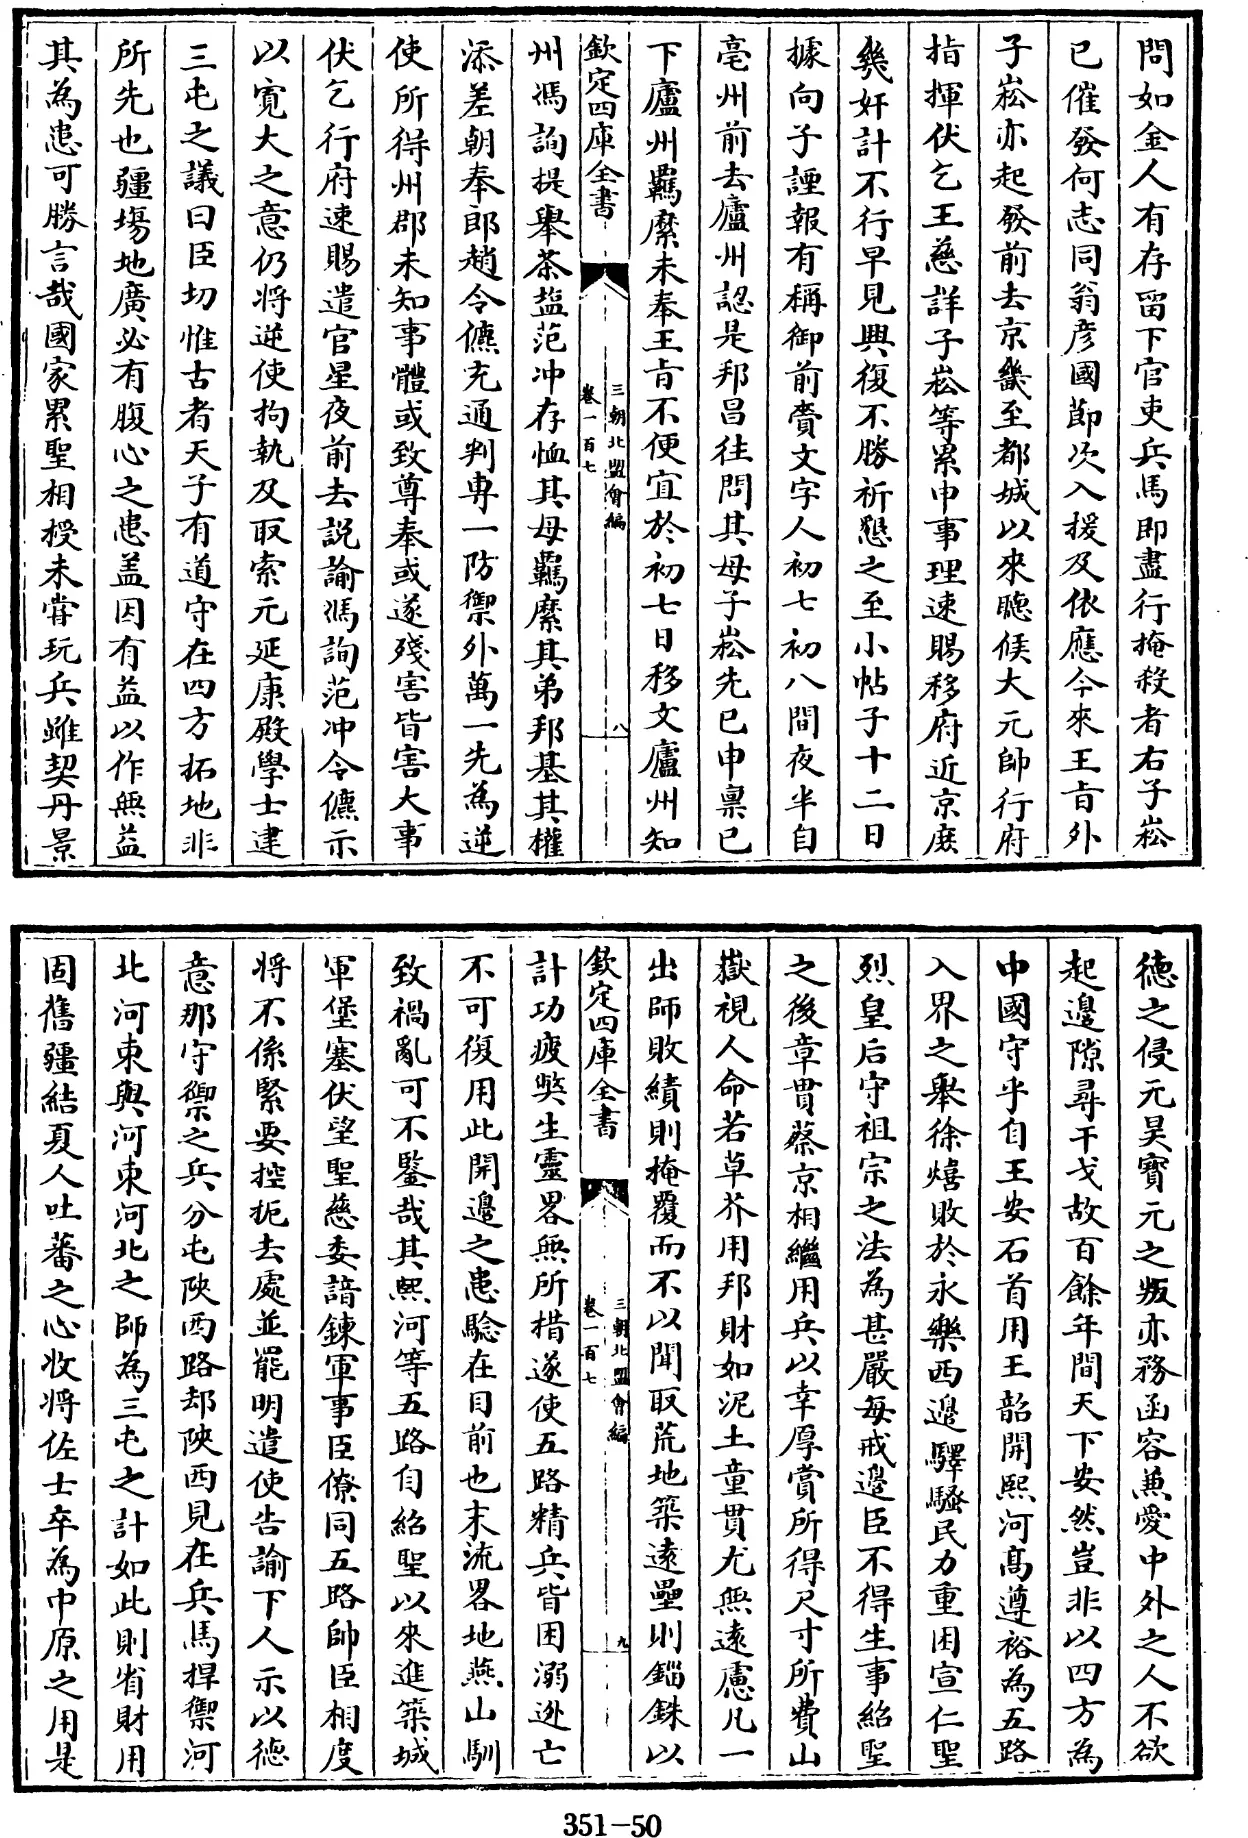 問如金人有存留下官吏兵馬即盡行掩殺者右子崧
已催發何志同翁彦國節次入援及依應今來王㫖外
子崧亦起發前去京畿至都城以來聽候大元帥行府
指揮伏乞王慈詳子崧等累申事理速賜移府近京庶
幾奸計不行早見興復不勝祈懇之至小帖子十二日
據向子諲報有稱御前賫文字人初七初八間夜半自
亳州前去廬州認是邦昌往問其母子崧先已申稟已
下廬州羈縻未奉王㫖不便宜於初七日移文廬州知
欽定四庫全書
三朝北盟會編
卷一百七
八
州馮詢提舉茶盐范冲存恤其母羈縻其弟邦基其權
添差朝奉郎趙令儦充通判専一防禦外萬一先為逆
使所得州郡未知事體或致尊奉或遂殘害皆害大事
伏乞行府速賜遣官星夜前去説諭馮詢范冲令儦示
以寛大之意仍將逆使拘執及取索元延康殿學士建
三屯之議曰臣切惟古者天子有道守在四方拓地非
所先也疆埸地廣必有腹心之患盖因有益以作無益
其為患可勝言哉國家累聖相授未甞玩兵雖契丹景
德之侵元昊寳元之叛亦務函容兼愛中外之人不欲
起邊隙尋干戈故百餘年間天下安然豈非以四方為
中國守乎自王安石首用王韶開熙河髙遵裕為五路
入界之舉徐熺敗於永樂西邊驛騷民力重困宣仁聖
烈皇后守祖宗之法為甚嚴每戒邊臣不得生事紹聖
之後章貫蔡京相繼用兵以幸厚賞所得尺寸所費山
嶽視人命若草芥用邦財如泥土童貫尤無逺慮凡一
出師敗績則掩覆而不以聞取荒地築逺壘則錙銖以
欽定四庫全書
三朝北盟會編
卷一百七
九
計功疲獘生靈畧無所惜遂使五路精兵皆困溺逃亡
不可復用此開邊之患騐在目前也末流畧地燕山馴
致禍亂可不鑒哉其熙河等五路自紹聖以來進築城
軍堡塞伏望聖慈委諳鍊軍事臣僚同五路帥臣相度
將不係緊要控扼去處並罷明遣使告諭下人示以德
意那守禦之兵分屯陜西路却陜西見在兵馬捍禦河
北河東與河東河北之師為三屯之計如此則省財用
固舊疆結夏人吐蕃之心收將佐士卒為中原之用是
351-50